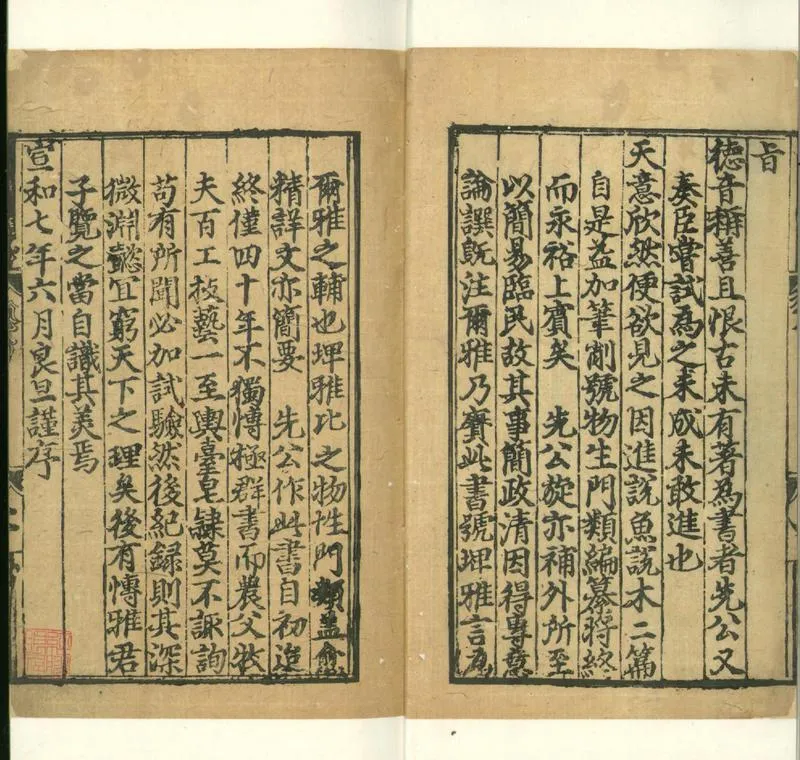 旨
德音稱善且恨古未有著為書者先公又
奏臣嘗試為之未成未敢進也
天意欣然便欲見之因進說魚說木二篇
自是益加筆削號物生門類編纂將終
而永裕上賓矣　先公旋亦補外所至
以簡易臨民故其事簡政清因得專意
論譔既注爾雅乃賡此書號埤雅言為
爾雅之輔也埤雅比之物性門類蓋愈
精詳文亦簡要　先公作此書自初迨
終僅四十年不獨慱極群書而農父牧
夫百工技藝一至輿臺皂隸莫不諏詢
苟有所聞必加試驗然後紀録則其深
微淵懿宜窮天下之理矣後有慱雅君
子覽之當自識其美焉
宣和七年六月良旦謹序